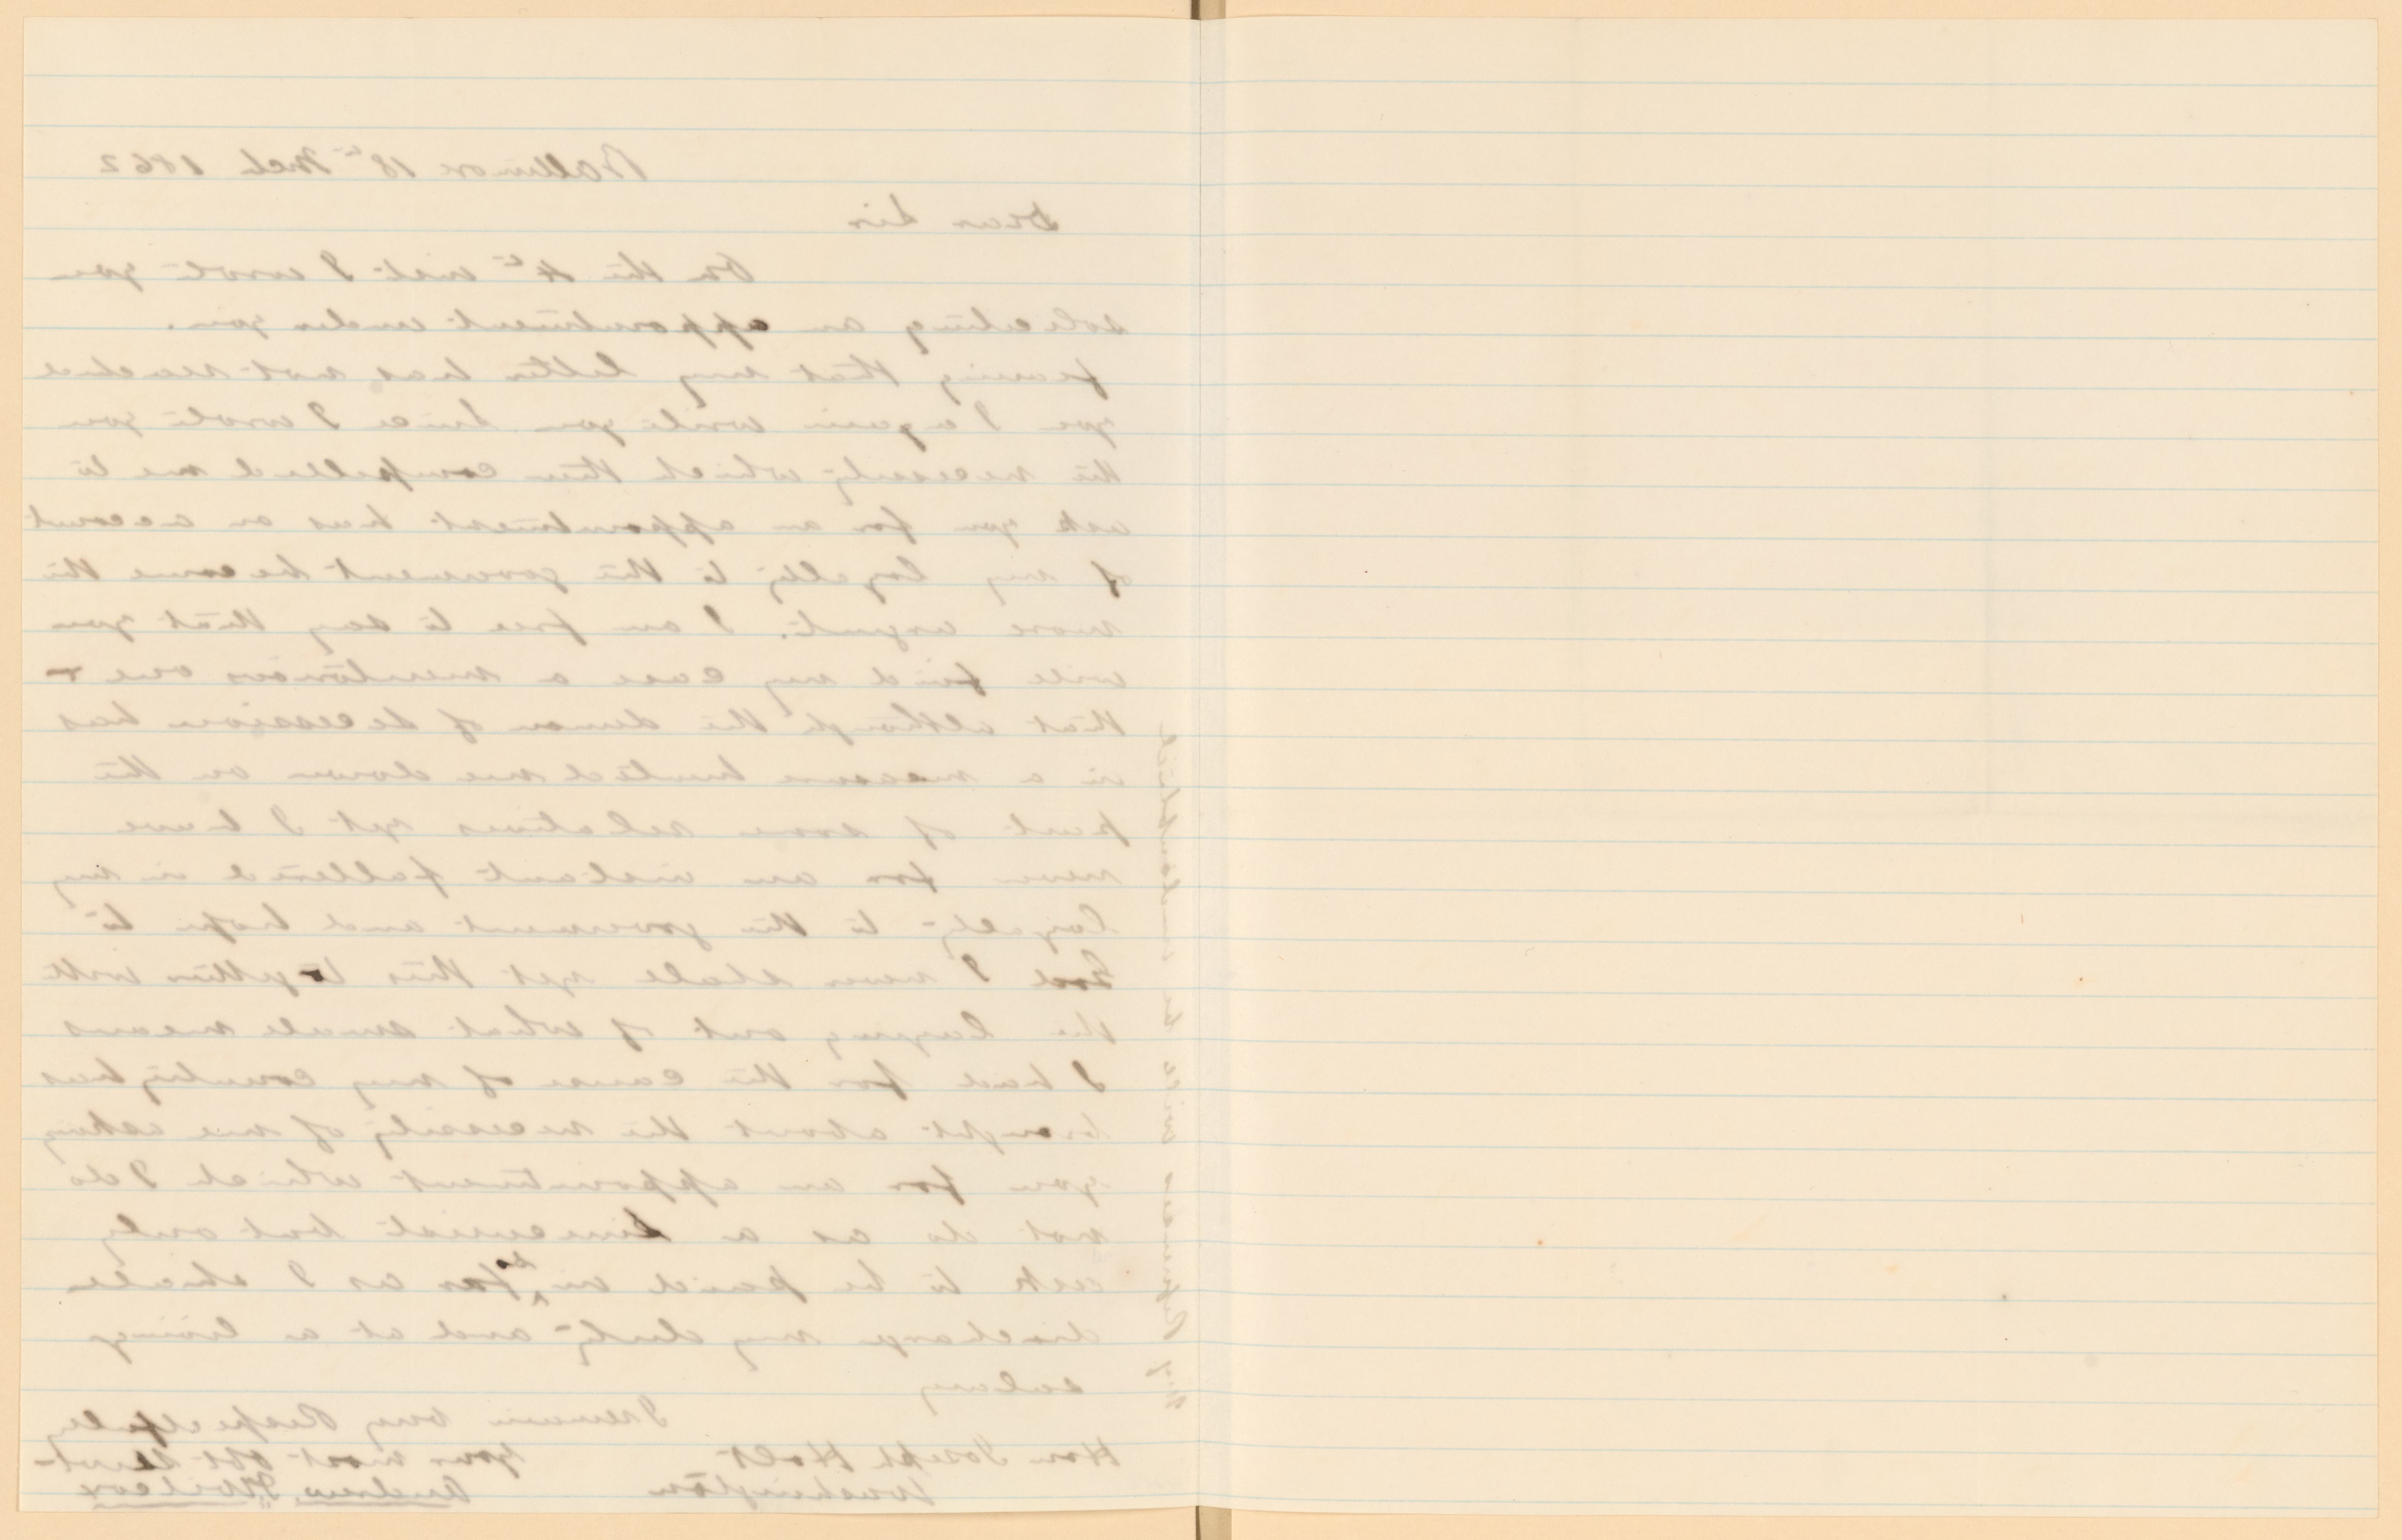 Baltimore 18th Mch 1862
Dear Sir
On the 4th inst I wrote you
soliciting an appointment under you.
fearing that my letter has not reached
you I again write you Since I wrote you
the necessity which then compelled me to
ask you for an appointment has on account
of my loyalty to the government become the
more urgent. I am free to say that you
will find my case a meritorious one &
that although the demon of secession has
in a measure hunted me down on the
part of some relatives yet I have
never for an instant faltered in my
loyalty to the government and hope to
God I never shall yet this together with
the laying out of what small means
I had for the cause of my country has
brought about the necessity of me asking
you for an appointment which I do
not do as a Sinecurist but only
ask to be paid in so far as I shall
discharge my duty and at a living
salary
I remain very Respectfully
Your most Obt Servt
Andrew
Hon Joseph Holt
Washington